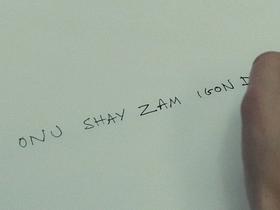 ONU SHAY ZAM IGON